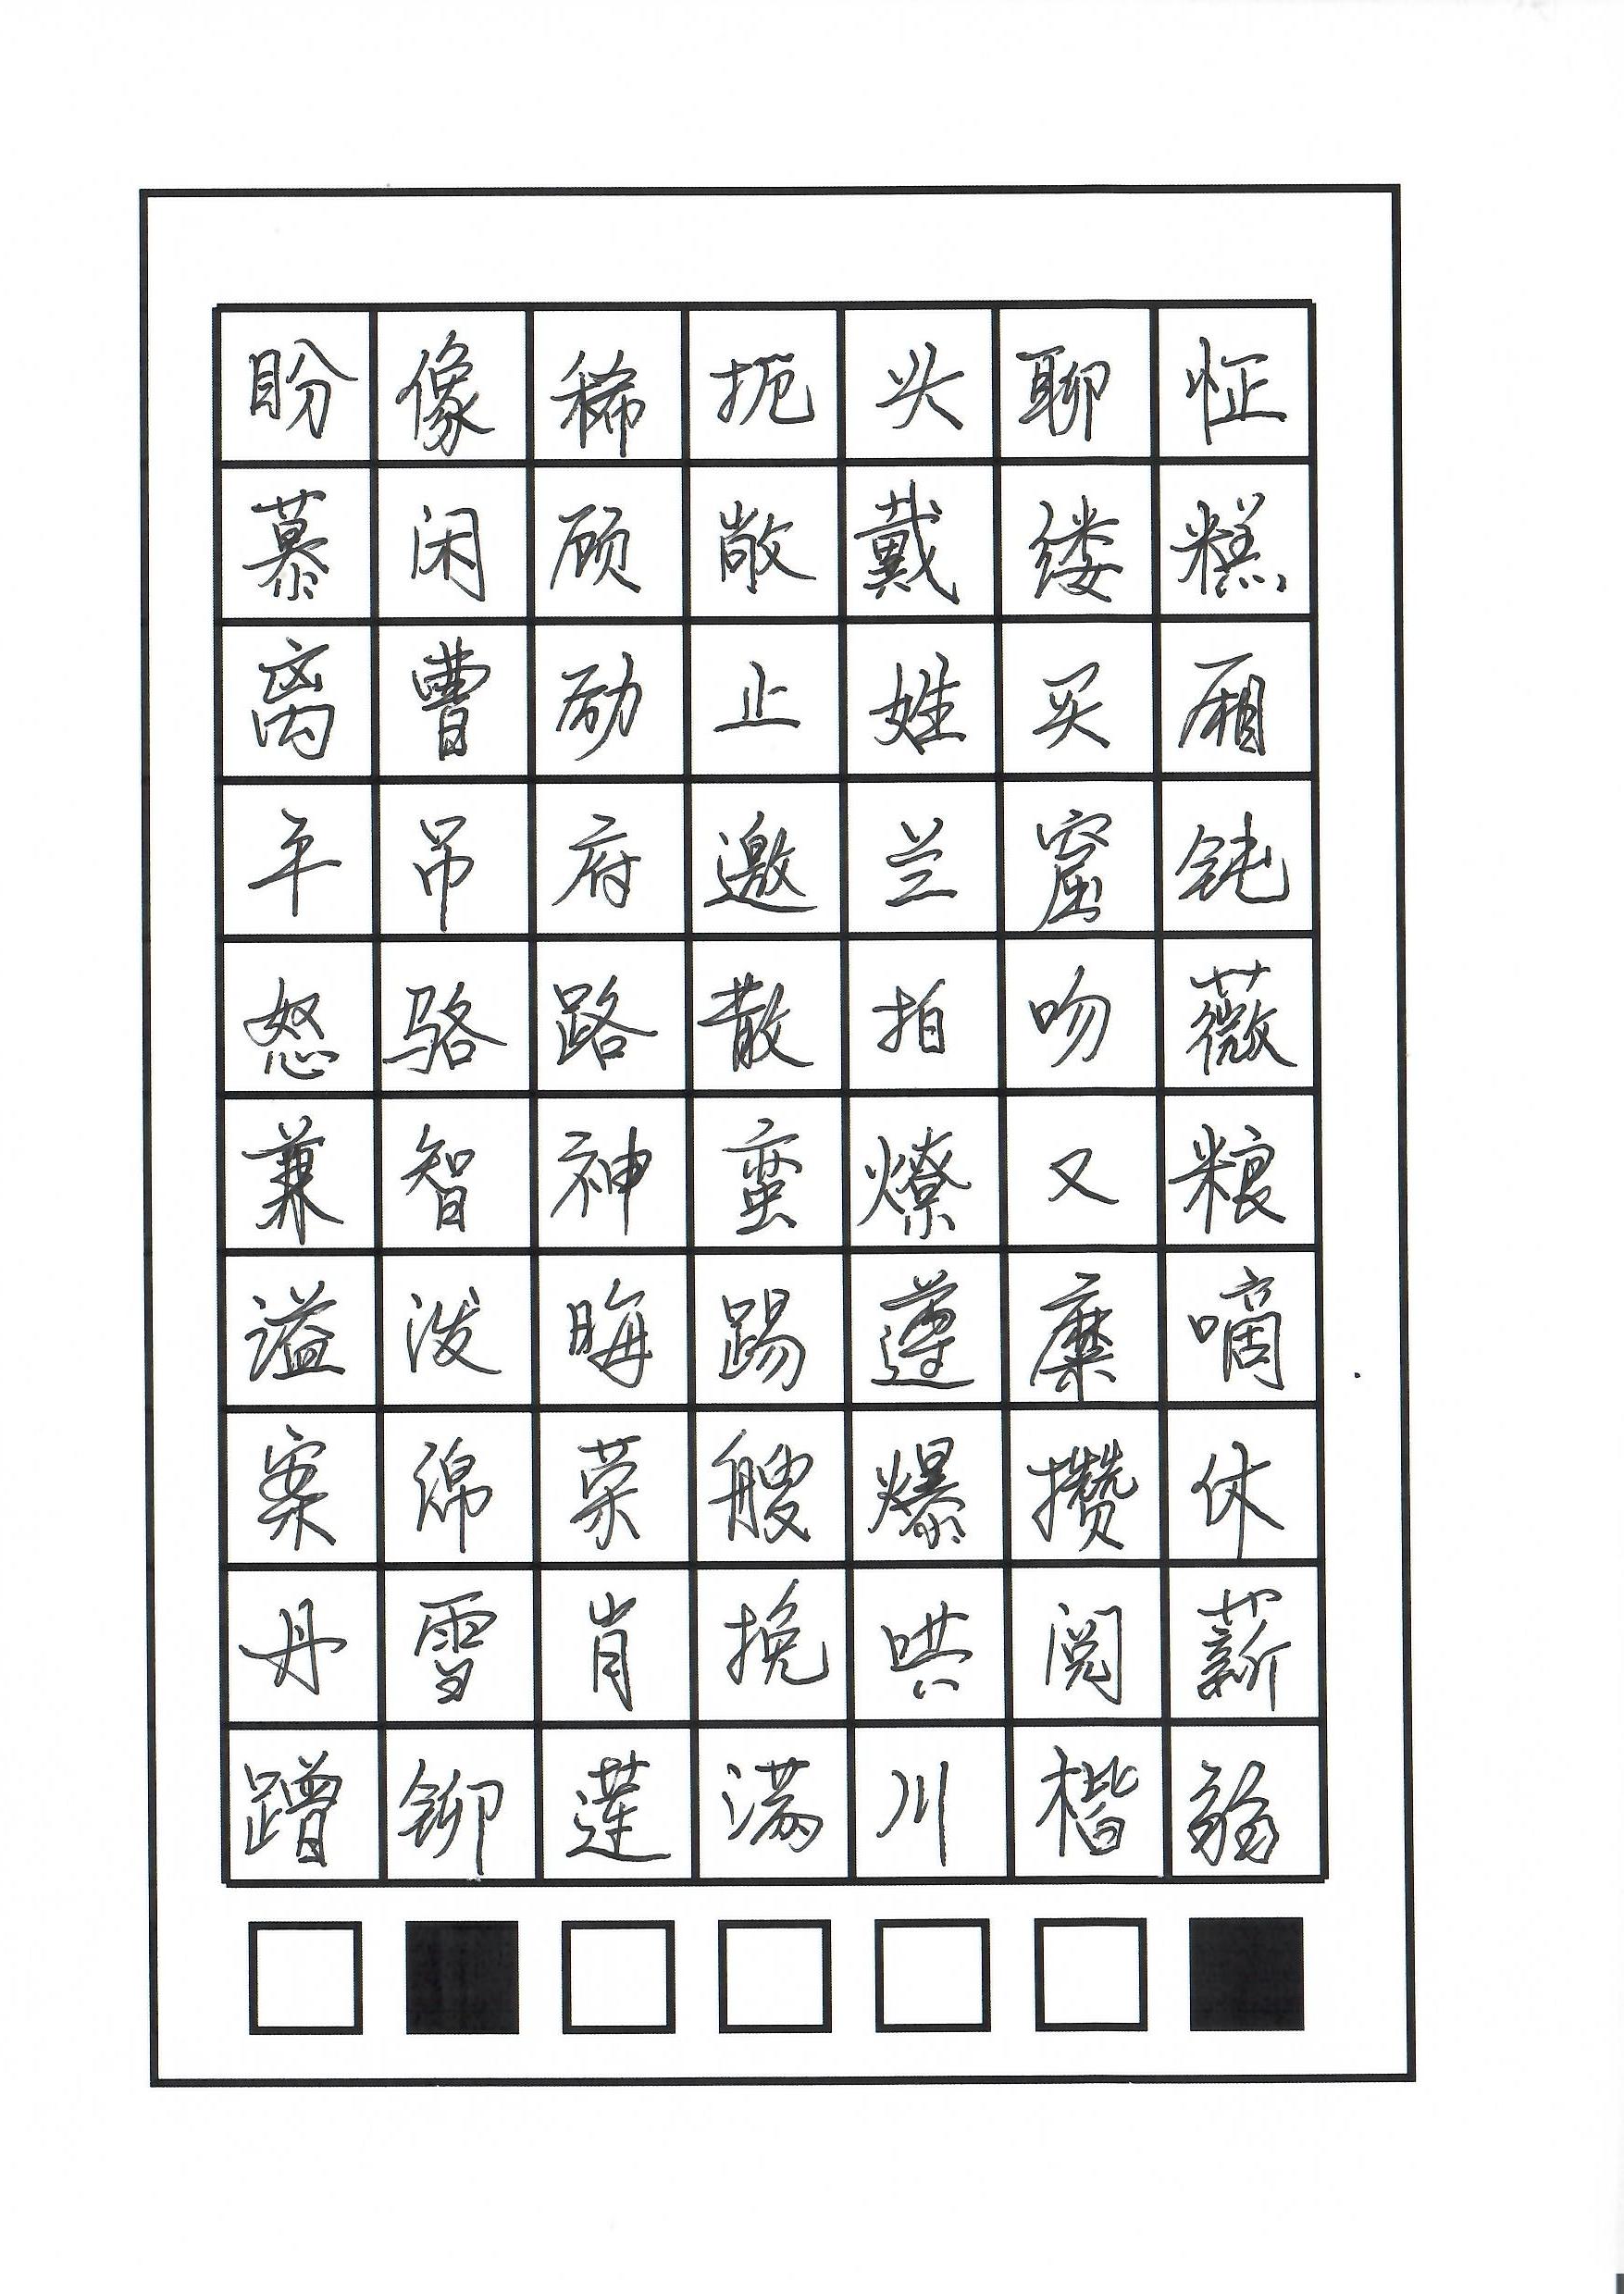 盼像稀扼头聊怔
慕闲顾敞戴缕糕
离曹励止姓买厢
平吊府邀兰窟钝
怒骆路散拍吻薇
兼智神蛮燎又粮
谥泼晦踢遵糜嘀
案绵菜艘爆攒伏
丹雪肖挽哄阅薪
蹭铆莲满川楷翁